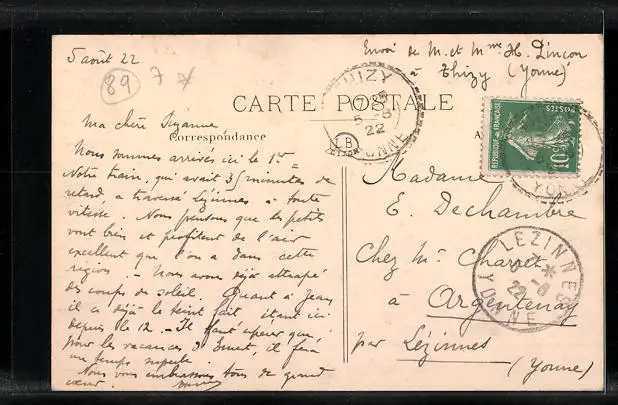 5 août 22
89
7
Envoi de M. et Mme H. Pinçon
à Thizy (Yonne)
CARTE POSTALE
Correspondance
THIZY
5-8
22
YONNE
LB
REPUBLIQUE FRANÇAISE
POSTES
10c
Ma chère Suzanne
Nous sommes arrivés ici le 1er
Notre train, qui avait 35 minutes de
retard, a traversé Lézinnes à toute
vitesse. Nous pensons que les petits
vont bien et profitent de l'air
excellent que l'on a dans cette
région. - Nous avons déjà attrapé
des coups de soleil. Quant à Jean
il a déjà le teint fait, étant ici
depuis le 12 - Il faut espérer que,
pour les vacances d'Ernest, il fera
un temps superbe
Nous vous embrassons tous de grand
cœur.
Madame
E. Dechambre
Chez Mr Charret
à Argentenay
par Lézinnes
(Yonne)
LEZINNES
7 *
5-8
22
YONNE